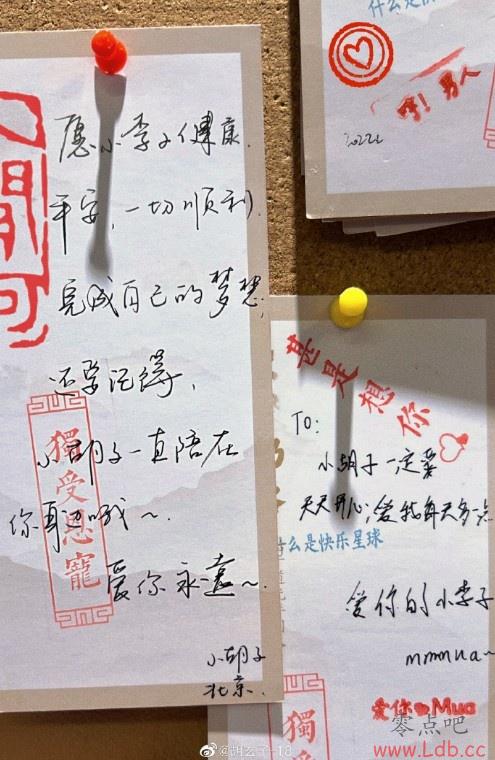 什么是快
哼！男人
間
可
愿小李子健康，
平安，一切顺利，
完成自己的梦想，
还要记得，
小胡子一直陪在
你身边哦～
爱你永远～
小胡子
北京
獨受恩寵
甚是想你
TO:
小胡子一定要
天天开心，爱我每天多一点
什么是快乐星球
爱你的小李子
mmmua～
爱你 Mua
獨
零点吧
www.Ldb.cc